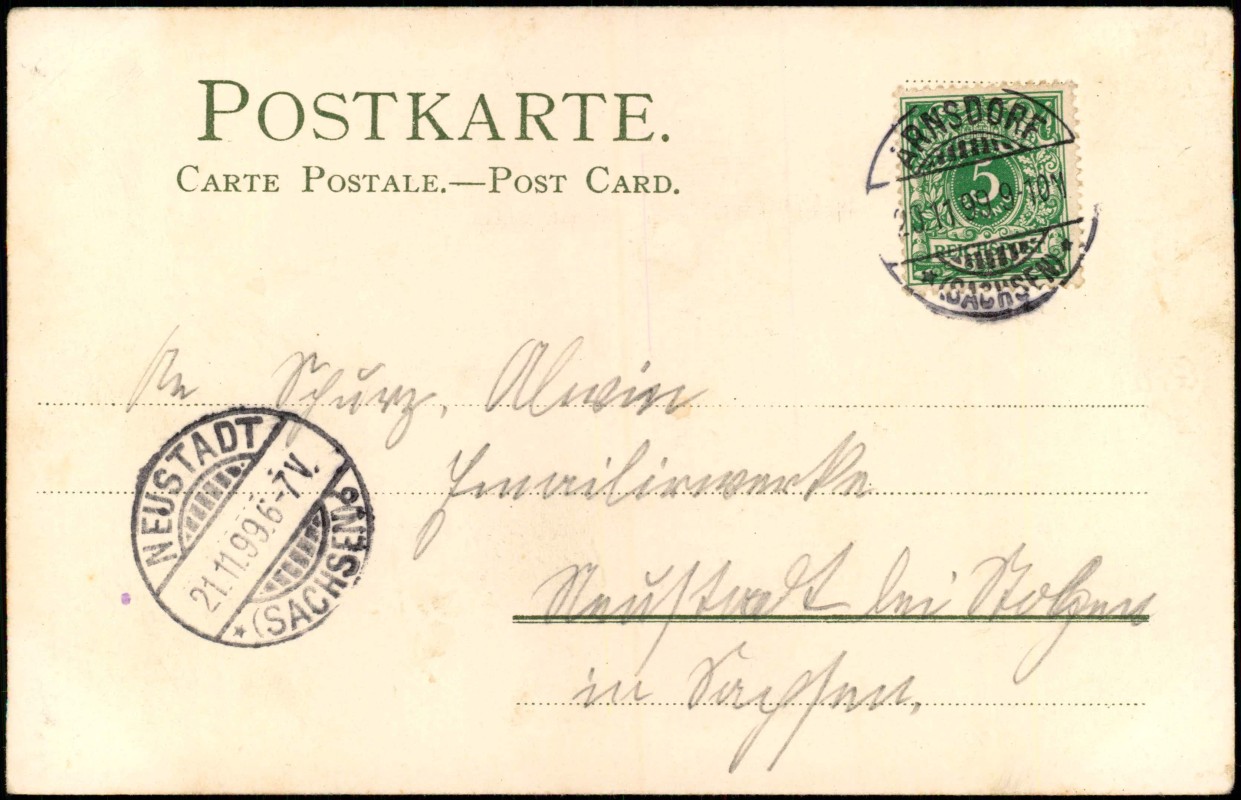 POSTKARTE.
CARTE POSTALE.—POST CARD.
ARNSDORF
5
11.99 9-10
REICHSPOST
* (SACHSEN) *
Schurz, Alwin
Emailirwerke
NEUSTADT
21.11.99.6-7V.
* (SACHSEN)
Neustadt bei Stolpen
in Sachsen.